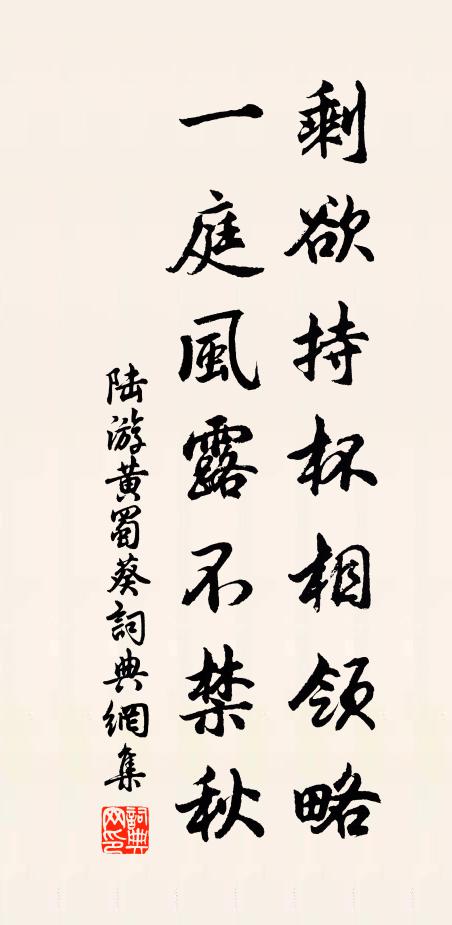 剩欲持杯相領略
一庭風露不禁秋
陆游黄蜀葵詞典網集
詞典网印